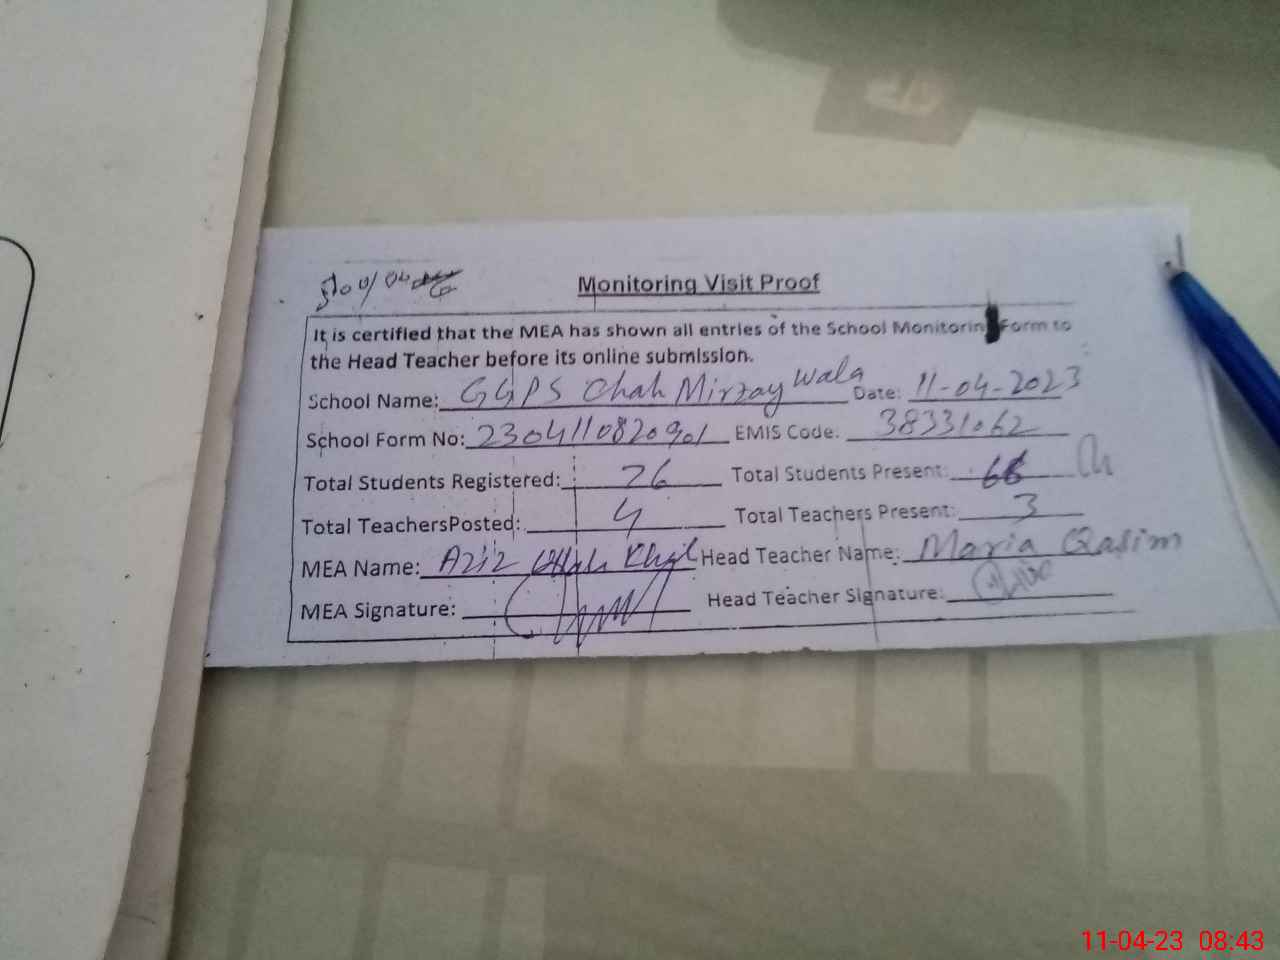 Monitoring Visit Proof
It is certified that the MEA has shown all entries of the School Monitorin Form to
the Head Teacher before its online submission.
School Name: GGPS Chah Mirzay Wala Date: 11-04-2023
School Form No: 2304110820901 EMIS Code: 38331062
Total Students Registered: 76 Total Students Present:
Total TeachersPosted: 4 Total Teachers Present: 3
MEA Name: Aziz Ullah Head Teacher Name: Maria Qasim
MEA Signature: Head Teacher Signature:
11-04-23 08:43